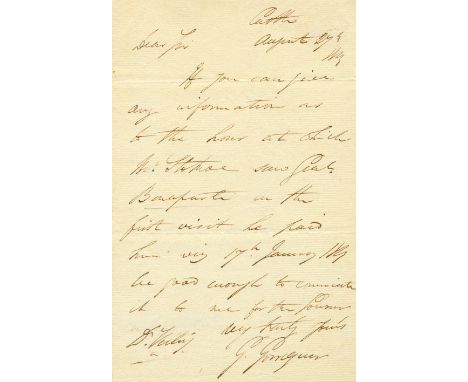 Castle
August 27th
1819
Dear Sir
If you can give
any information as
to the hour at which
Mr. Stokoe saw Genl.
Bonaparte on the
first visit he paid
him viz 17th January 1819
be good enough to
it to me for the Governor
very truly yours
Dr. Verling
G. Gorrequer